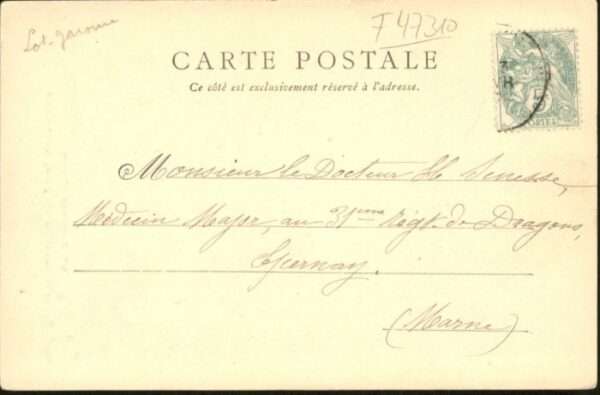 Lot-garonne
F 47310
CARTE POSTALE
Ce côté est exclusivement réservé à l'adresse.
Monsieur le Docteur H.
Médecin Major, au 31ème Régt. de Dragons,
Epernay.
(Marne)